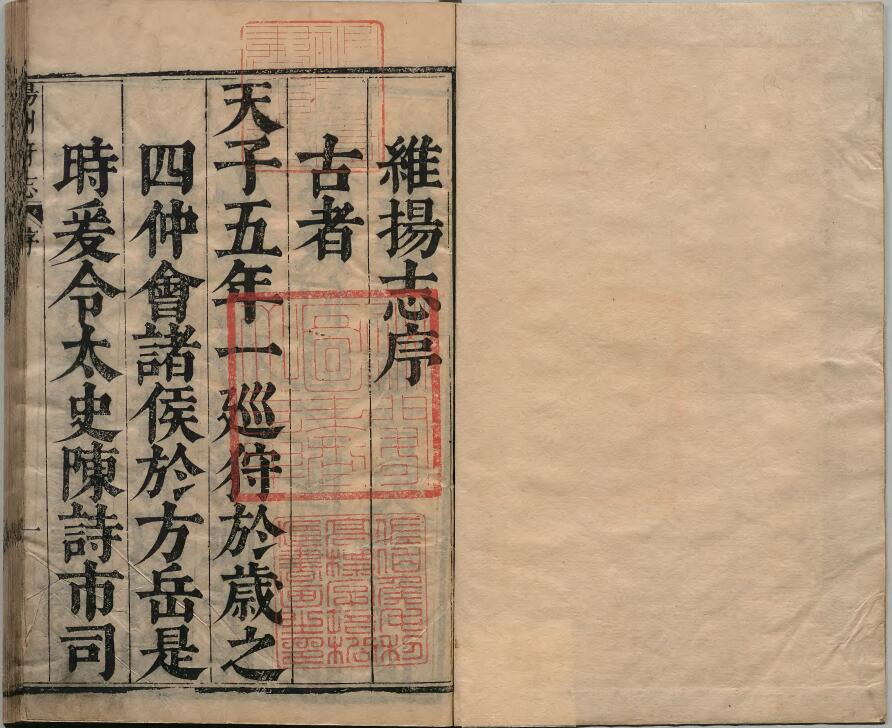 維揚志序
古者
天子五年一廵狩於歲之
四仲會諸侯於方岳是
時爰令太史陳詩市司
州府志 序 一